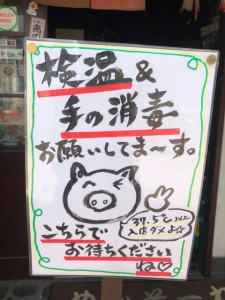 検温&
手の消毒
お願いしてま〜す。
37.5℃
入店ダメよ☆
こちらで
お待ちください
ね♡